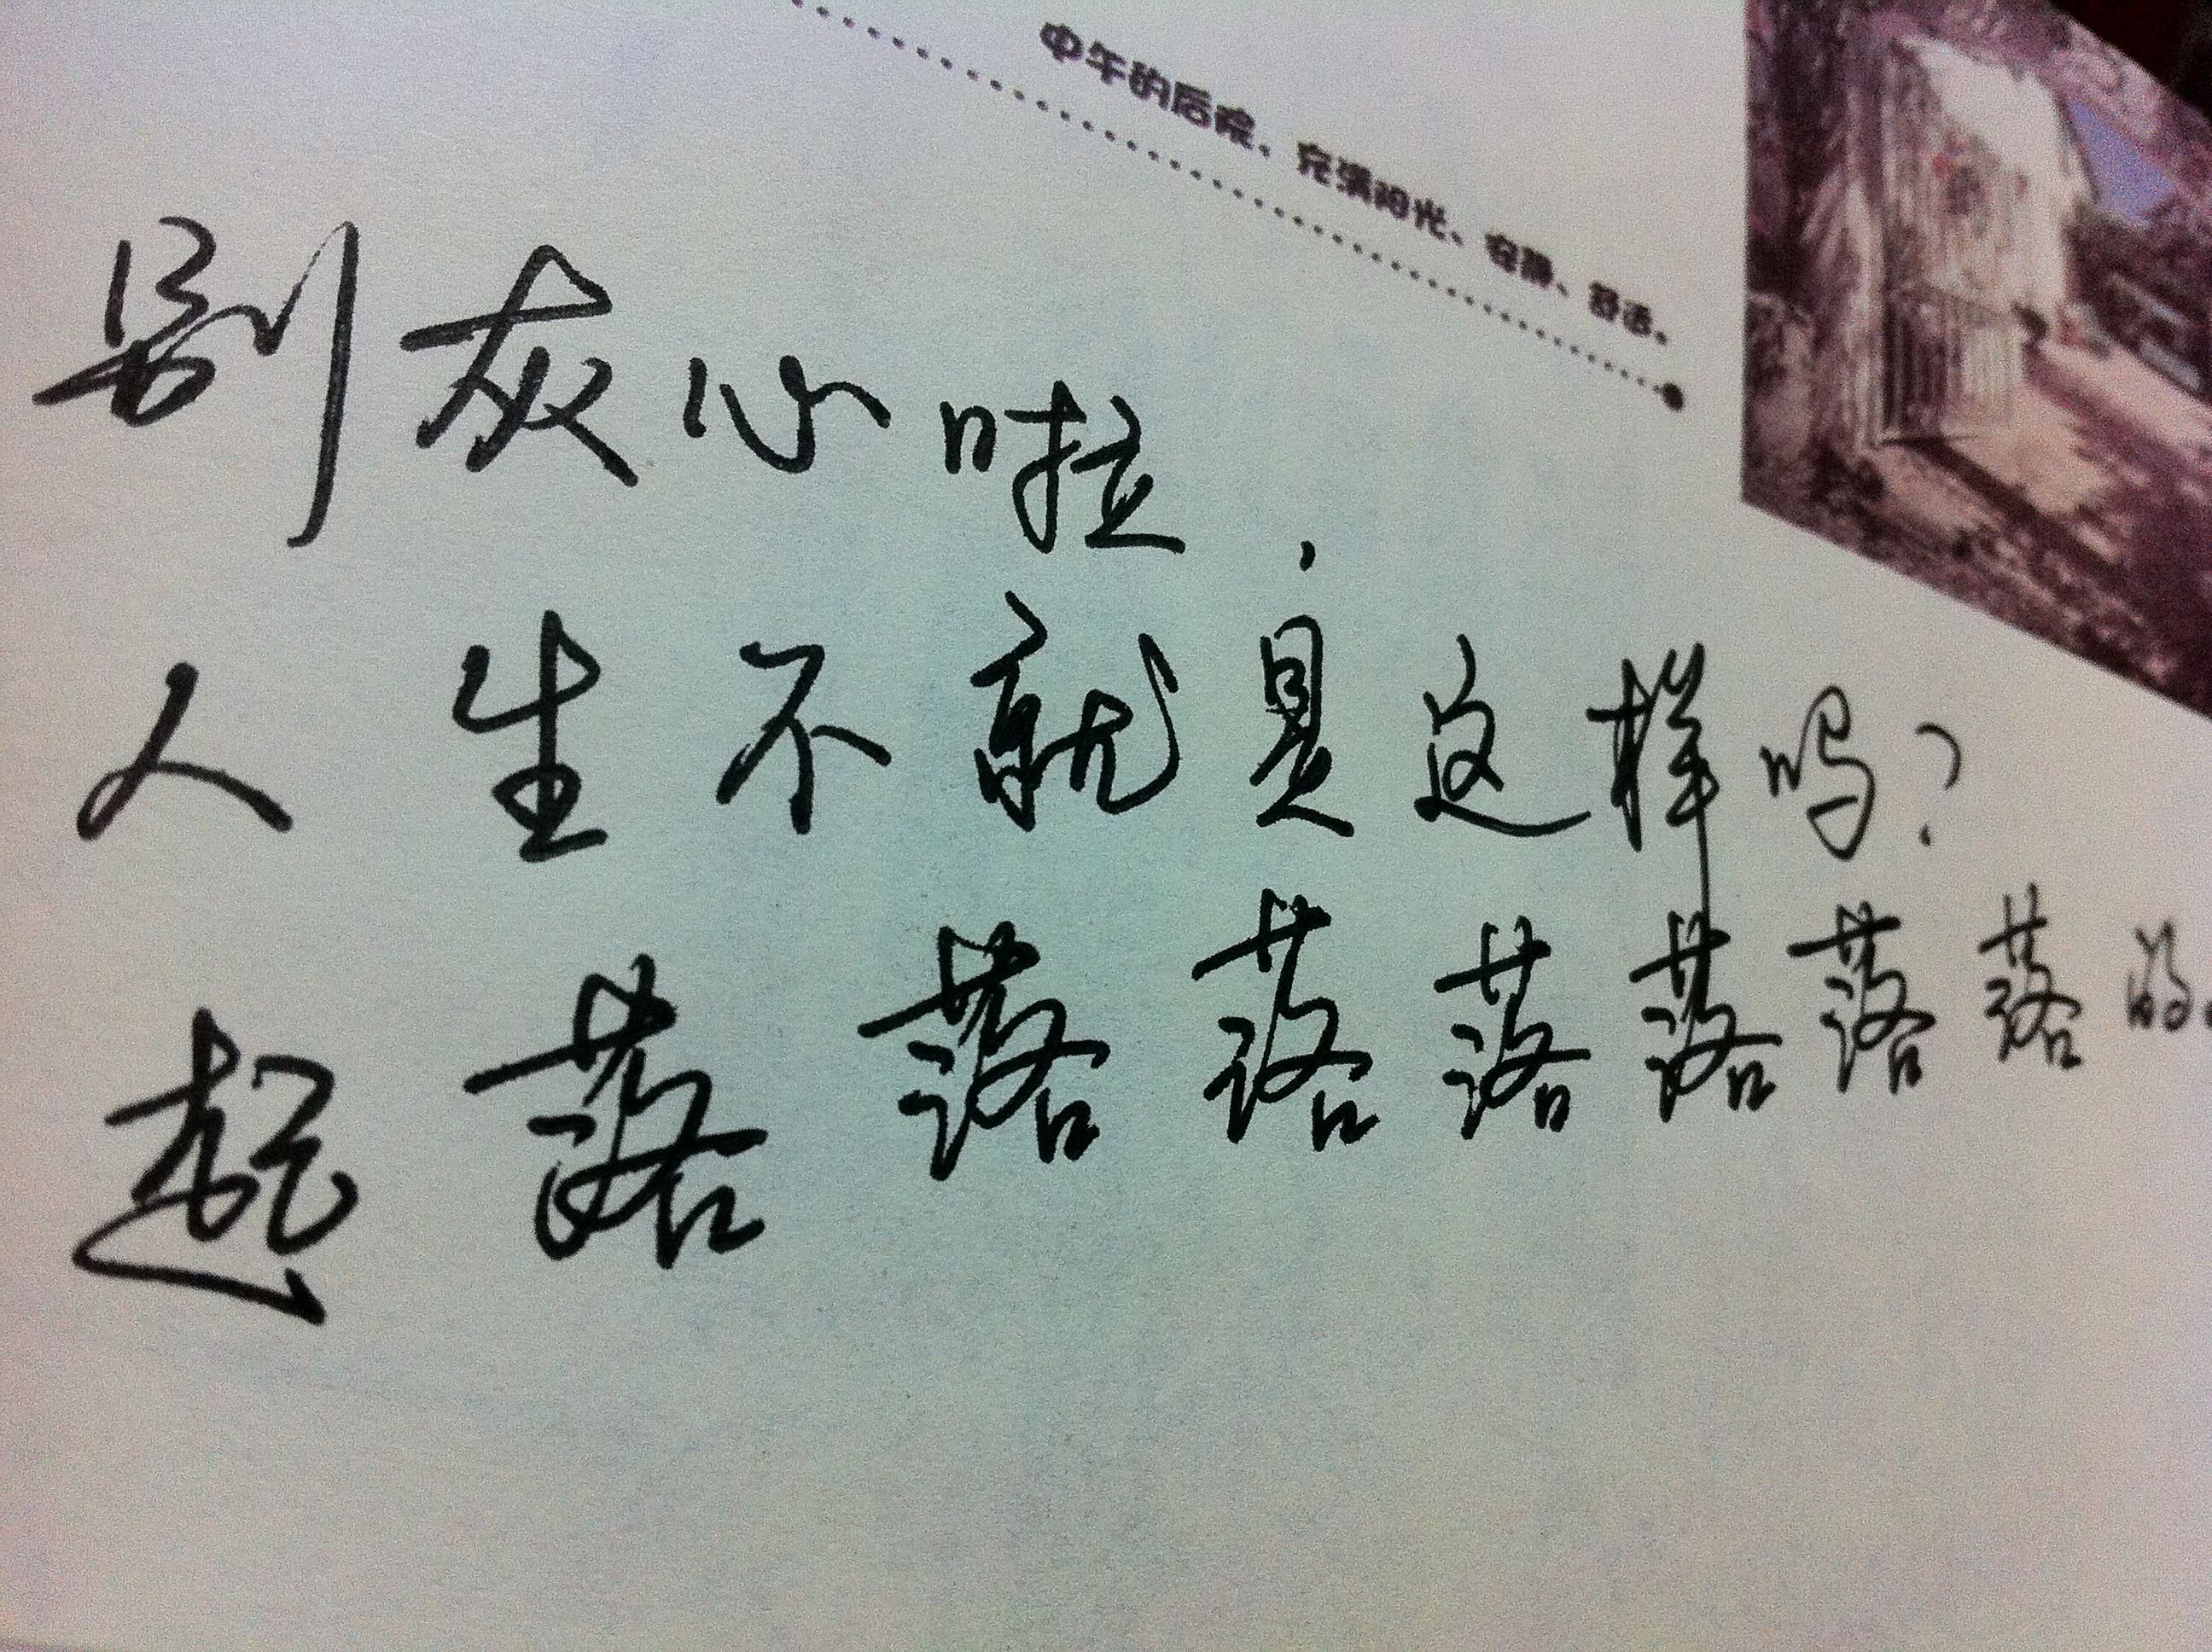 中午的后院、充满阳光、安静、舒适。
别灰心啦，
人生不就是这样吗？
起落落落落落落落的